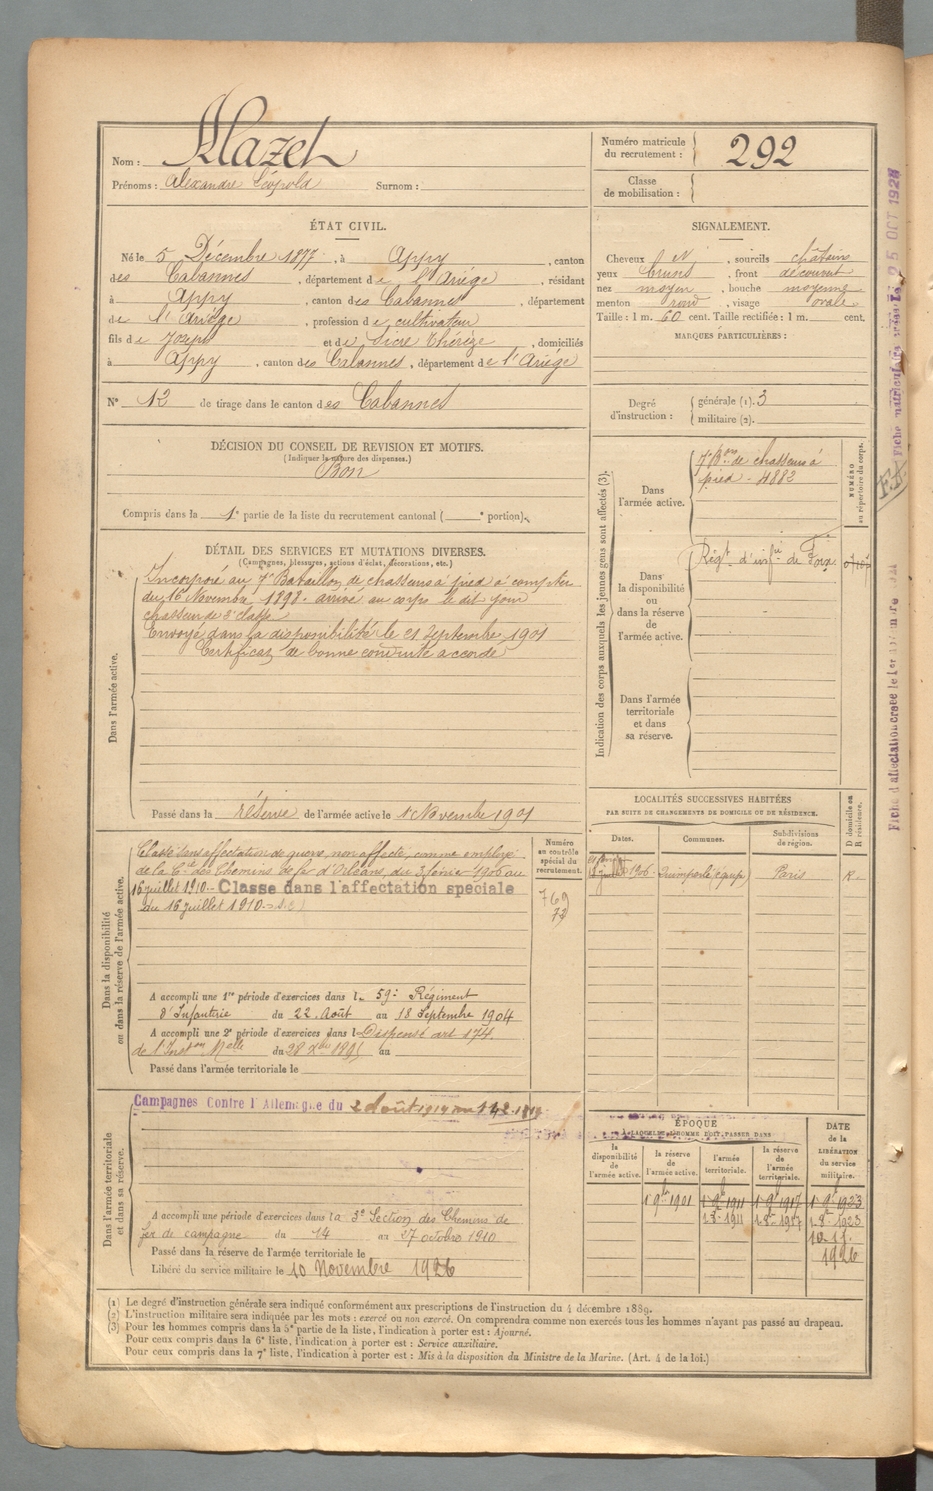 Nom : Mazet
Prénoms : Alexandre Léopold Surnom :
Numéro matricule du recrutement : 292
Classe de mobilisation :
ÉTAT CIVIL.
Né le 5 Décembre 1877, à Appy, canton
des Cabannes, département de l'Ariège, résidant
à Appy, canton des Cabannes, département
de l'Ariège, profession de cultivateur
fils de Joseph et de Sicre Thérèze, domiciliés
à Appy, canton des Cabannes, département de l'Ariège
N° 12 de tirage dans le canton des Cabannes
SIGNALEMENT.
Cheveux N, sourcils châtains
yeux bruns, front découvert
nez moyen, bouche moyenne
menton rond, visage ovale
Taille : 1 m. 60 cent. Taille rectifiée : 1 m. cent.
MARQUES PARTICULIÈRES :
Degré d'instruction : générale (1). 3
militaire (2).
DÉCISION DU CONSEIL DE REVISION ET MOTIFS.
(Indiquer la nature des dispenses.)
Bon
Compris dans la 1e partie de la liste du recrutement cantonal ( e portion).
DÉTAIL DES SERVICES ET MUTATIONS DIVERSES.
(Campagnes, blessures, actions d'éclat, décorations, etc.)
Dans l'armée active.
Incorporé au 7e Bataillon de chasseurs à pied à compter
du 16 Novembre 1898. arrivé au corps le dit jour
chasseur de 2e classe
Envoyé dans la disponibilité le 21 Septembre 1901
Certificat de bonne conduite accordé
Passé dans la réserve de l'armée active le 1er Novembre 1901
Indication des corps auxquels les jeunes gens sont affectés (3).
NUMÉRO au répertoire du corps.
Dans l'armée active.
7e Bon de chasseurs à
pied - 4882
Dans la disponibilité ou dans la réserve de l'armée active.
Régt d'infrie de Foix
Dans l'armée territoriale et dans sa réserve.
LOCALITÉS SUCCESSIVES HABITÉES
PAR SUITE DE CHANGEMENTS DE DOMICILE OU DE RÉSIDENCE.
Dates. Communes. Subdivisions de région. D domicile ou R résidence.
1906 Quimperlé (équipe) Paris R.
Dans la disponibilité ou dans la réserve de l'armée active.
Numéro au contrôle spécial du recrutement.
769
72
Classé dans affectation de guerre, non affecté, comme employé
de la Cie des Chemins de fer d'Orléans, du 3 février 1906 au
16 juillet 1910.- Classé dans l'affectation spéciale
du 16 juillet 1910.-
A accompli une 1re période d'exercices dans le 59e Régiment
d'Infanterie du 22 Août au 18 Septembre 1904
A accompli une 2e période d'exercices dans l Dispensé art 174.
de l'Inston Melle du 28 Xbre 1895 au
Passé dans l'armée territoriale le
Dans l'armée territoriale et dans sa réserve.
Campagnes Contre l'Allemagne du 2 Août 1914 au
A accompli une période d'exercices dans la 3e Section des Chemins de
fer de campagne du 14 au 27 octobre 1910
Passé dans la réserve de l'armée territoriale le
Libéré du service militaire le 10 Novembre 1926
ÉPOQUE
À LAQUELLE L'HOMME DOIT PASSER DANS
la disponibilité de l'armée active. la réserve de l'armée active. l'armée territoriale. la réserve de l'armée territoriale. DATE de la LIBÉRATION du service militaire.
1 9bre 1901 1 9bre 1911 1 9bre 1917 1 9bre 1923
1-8-1911 1-8-1917 1-8-1923
10.11.
1926
(1) Le degré d'instruction générale sera indiqué conformément aux prescriptions de l'instruction du 4 décembre 1889.
(2) L'instruction militaire sera indiquée par les mots : exercé ou non exercé. On comprendra comme non exercés tous les hommes n'ayant pas passé au drapeau.
(3) Pour les hommes compris dans la 5e partie de la liste, l'indication à porter est : Ajourné.
Pour ceux compris dans la 6e liste, l'indication à porter est : Service auxiliaire.
Pour ceux compris dans la 7e liste, l'indication à porter est : Mis à la disposition du Ministre de la Marine. (Art. 4 de la loi.)
25 OCT 1928
F.A.